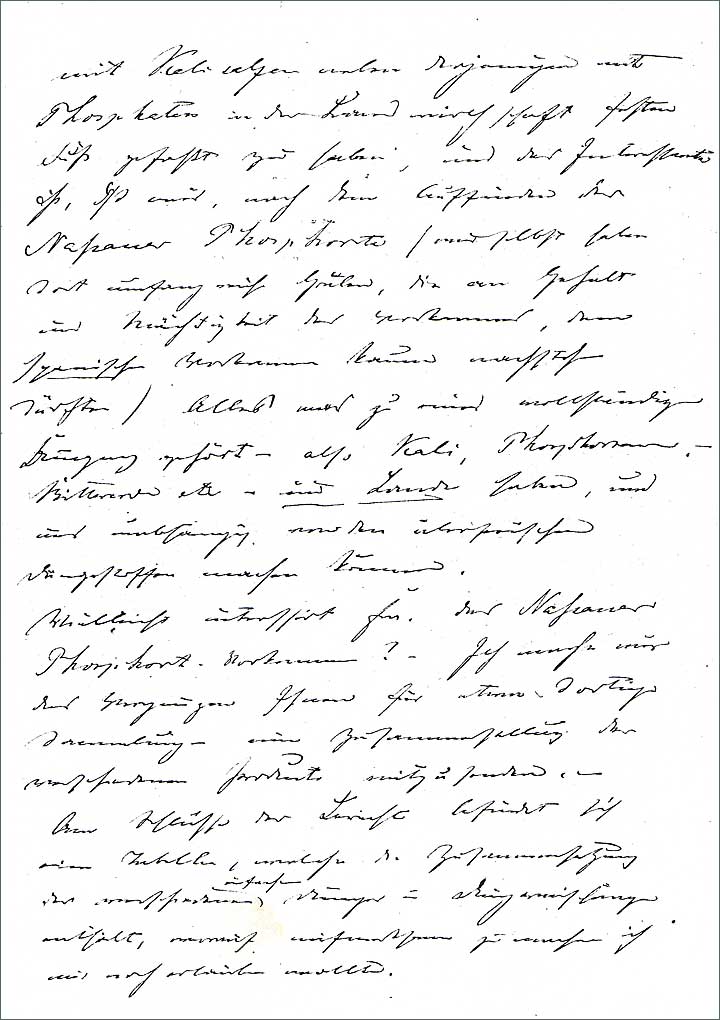 mit Kalisalzen neben denjenigen mit
Phosphaten in der Landwirthschaft festen
Fuß gefaßt zu haben, und das Interessante
ist, daß wir, nach dem Auffinden der
Naßauer Phosphorite (wir selbst haben
dort umfangreiche Gruben, die an Gehalt
und Mächtigkeit des Vorkommens, dem
spanischen Vorkommen kaum nachstehen
dürften) Alles was zu einer vollständigen
Düngung gehört – also Kali, Phosphorsäure, –
Bittererde etc – im Lande haben, und
uns unabhängig von den überseeischen
Dungstoffen machen können.
Vielleicht interessirt Sie das Naßauer
Phosphorit-Vorkommen? – Ich mache mir
das Vergnügen Ihnen für etwa dortige
Sammlung – eine Zusammenstellung der
verschiedenen Producte mitzusenden. –
Am Schluße des Berichts befindet sich
eine Tabelle, welche die Zusammensetzung
der verschiedenen einfachen Dünger u Düngermischungen
enthält, worauf aufmerksam zu machen ich
mir noch erlauben wollte.